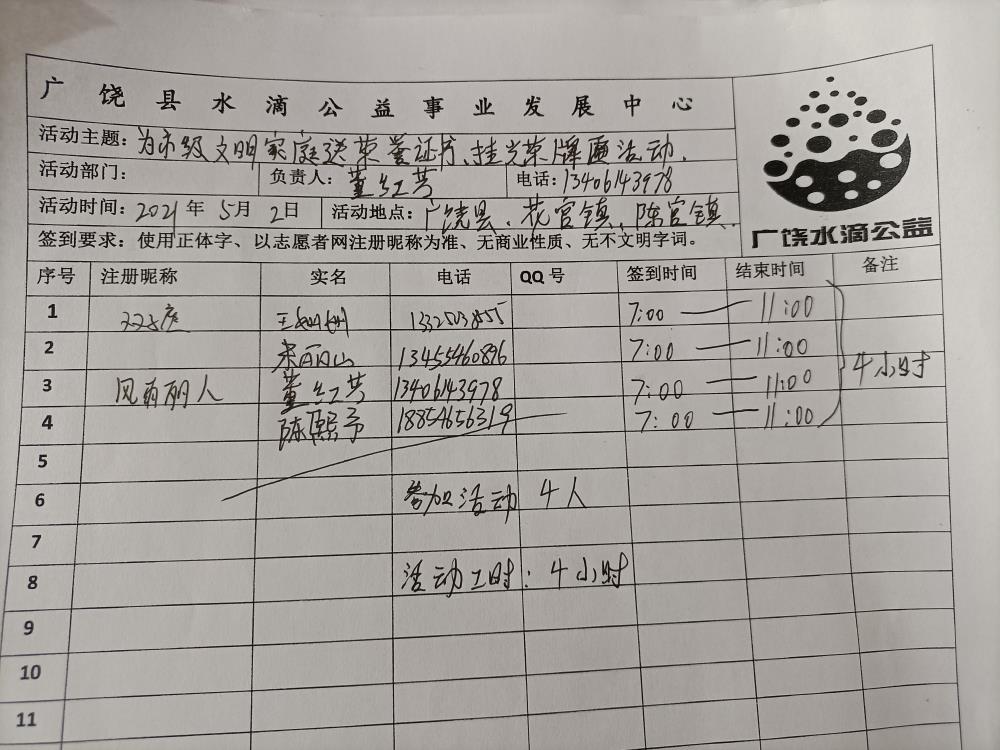 广饶县水滴公益事业发展中心
活动主题：为市级文明家庭送荣誉证书、挂光荣牌匾活动.
活动部门： 负责人：董红芳 电话：13406143978
活动时间：2021年5月2日 活动地点：广饶县、花官镇、陈官镇.
广饶水滴公益
签到要求：使用正体字、以志愿者网注册昵称为准、无商业性质、无不文明字词。
序号 注册昵称 实名 电话 QQ号 签到时间 结束时间 备注
1 7:00 — 11:00
2 13455460896 7:00 — 11:00
3 风雨丽人 董红芳 13406143978 7:00 — 11:00 4小时
4 陈熙予 18854656319 7:00 — 11:00
5
6 参加活动 4人
7
8 活动工时：4小时
9
10
11